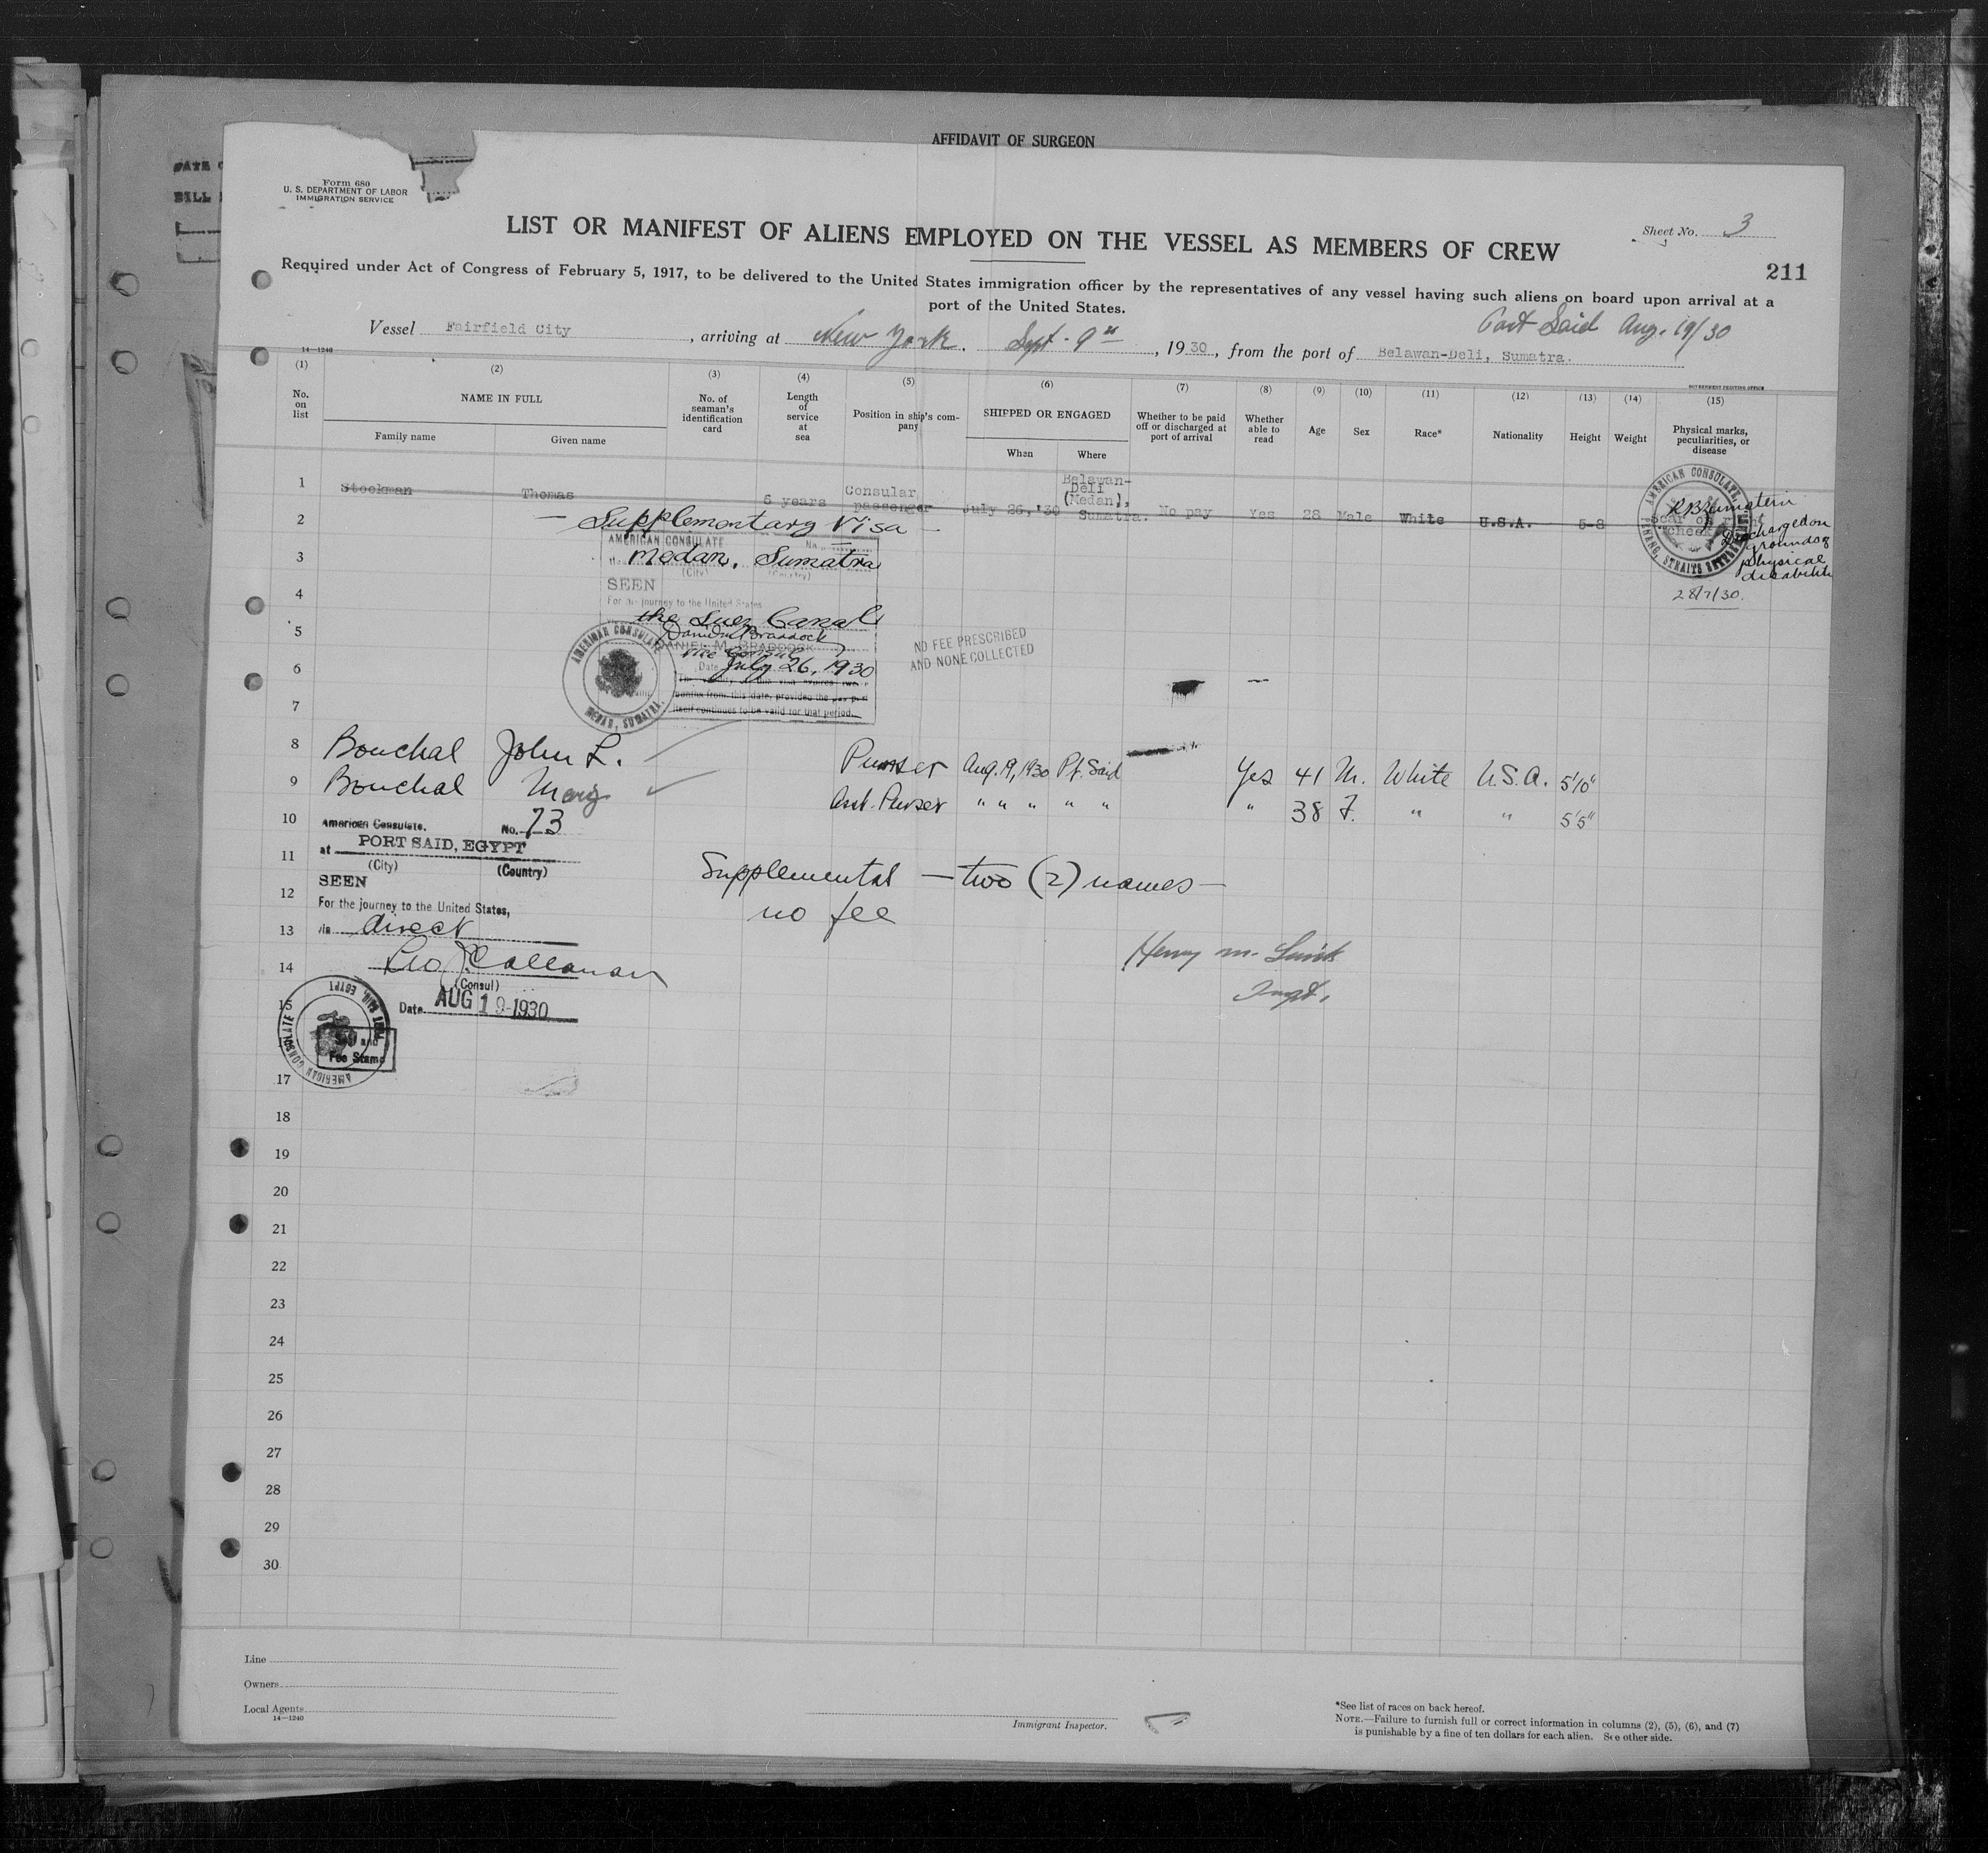 AFFIDAVIT OF SURGEON
Form 680
U. S. DEPARTMENT OF LABOR
IMMIGRATION SERVICE
LIST OR MANIFEST OF ALIENS EMPLOYED ON THE VESSEL AS MEMBERS OF CREW
Sheet No. 3
211
Required under Act of Congress of February 5, 1917, to be delivered to the United States immigration officer by the representatives of any vessel having such aliens on board upon arrival at a
port of the United States.
Port Said Aug. 19/30
Vessel Fairfield City, arriving at New York. Sept. 9th, 1930, from the port of Belawan-Deli, Sumatra.
14—1240
GOVERNMENT PRINTING OFFICE
(1) (2) (3) (4) (5) (6) (7) (8) (9) (10) (11) (12) (13) (14) (15)
No. on list
NAME IN FULL
Family name
Given name
No. of seaman's identification card
Length of service at sea
Position in ship's company
SHIPPED OR ENGAGED
When
Where
Whether to be paid off or discharged at port of arrival
Whether able to read
Age
Sex
Race*
Nationality
Height
Weight
Physical marks, peculiarities, or disease
1 Stockman Thomas 6 years Consular passenger July 26, '30 Belawan-Deli (Medan), Sumatra. No pay Yes 28 Male White U.S.A. 5-8
AMERICAN CONSULATE, PENANG, STRAITS
Discharged on
grounds of
physical
disability
28/7/30.
2
— Supplementary Visa —
AMERICAN CONSULATE No.
3
Medan, Sumatra
(City) (Country)
SEEN
4
For the journey to the United States
the Suez Canal
5
DANIEL M. BRADDOCK
Vice Consul
6
Date July 26, 1930
months from this date, provided the
itself continues to be valid for that period.
AMERICAN CONSULATE MEDAN, SUMATRA.
NO FEE PRESCRIBED
AND NONE COLLECTED
7
8 Bouchal John L. Purser Aug. 19, 1930 Pt. Said Yes 41 M. White U.S.A. 5'10"
9 Bouchal Mary Asst. Purser " " " " " " 38 F. " " 5'5"
10
American Consulate. No. 73
at PORT SAID, EGYPT
(City) (Country)
11
SEEN
12
For the journey to the United States,
13
via direct
Supplemental — two (2) names —
no fee
14
(Consul)
15
Date AUG 19 1930
AMERICAN CONSULATE PORT SAID, EGYPT
Seal and
Fee Stamp
Henry M.
Inspt.
17
18
19
20
21
22
23
24
25
26
27
28
29
30
Line
Owners
Local Agents
14—1240
Immigrant Inspector.
*See list of races on back hereof.
NOTE.—Failure to furnish full or correct information in columns (2), (5), (6), and (7)
is punishable by a fine of ten dollars for each alien. See other side.